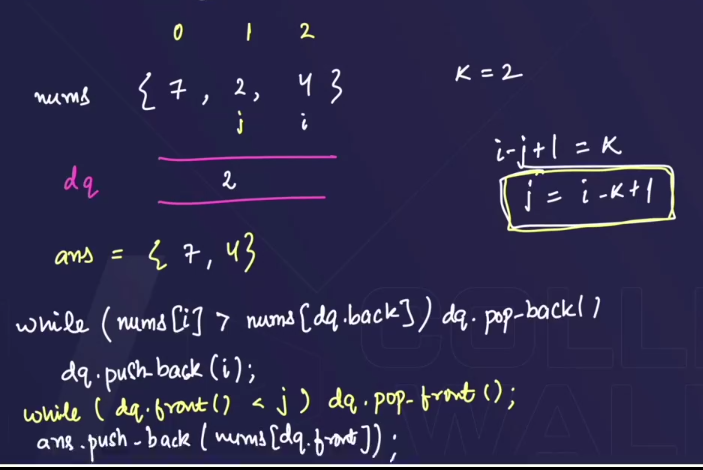 0 1 2
nums { 7 , 2, 4 }
j i
K = 2
i-j+1 = K
j = i-K+1
dq 2
ans = { 7, 4}
while (nums[i] > nums[dq.back]) dq.pop-back()
dq.push back (i);
while ( dq.front() < j ) dq.pop-front();
ans.push-back ( nums[dq.front]);
COLL
WAL